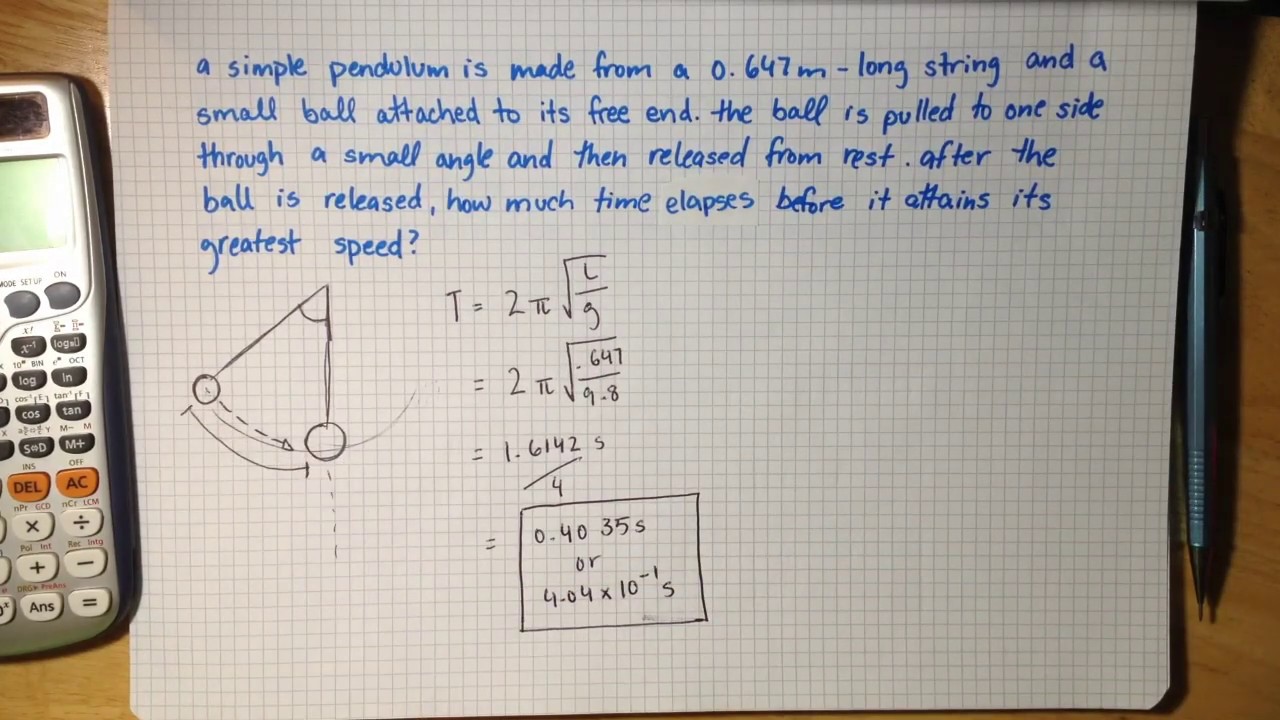 a simple pendulum is made from a 0.647m-long string and a
small ball attached to its free end. the ball is pulled to one side
through a small angle and then released from rest. after the
ball is released, how much time elapses before it attains its
greatest speed?
T = 2π√(L/g)
= 2π√(.647/9.8)
= 1.6142 s
/4
= 0.4035s
or
4.04 x 10⁻¹ s
MODE SETUP ON
x! 
x⁻¹ log
10ˣ BIN eˣ OCT
log ln
cos⁻¹ E tan⁻¹ F
cos tan
M− M
S⇔D M+
INS OFF
DEL AC
nPr GCD nCr LCM
× ÷
Pol Int Rec Intg
+ −
DRG▸ PreAns
Ans =